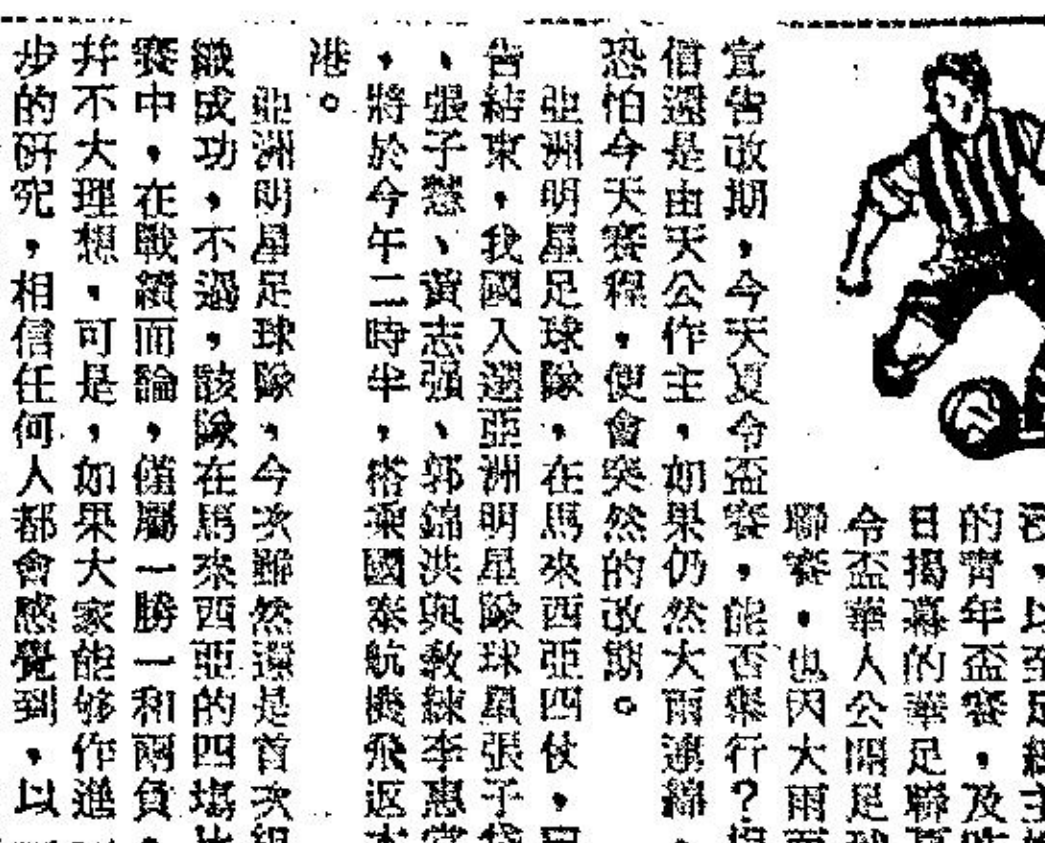 ，以至足總主
的青年盃賽，及
日揭幕的華足聯
令盃華人公開足
聯賽，也因大雨而
宣告改期，今天夏令盃賽，能否舉行？
信還是由天公作主，如果仍然大雨連綿，
恐怕今天賽程，便會突然的改期。
亞洲明星足球隊，在馬來西亞四仗，
告結束，我國入選亞洲明星隊球星張子
、張子慧、黃志強、郭錦洪與教練李惠堂
，將於今午二時半，搭乘國泰航機飛返
港。
亞洲明星足球隊，今次雖然還是首次組
織成功，不過，該隊在馬來西亞的四塲比
賽中，在戰績而論，僅屬一勝一和兩負，
并不大理想，可是，如果大家能够作進
步的研究，相信任何人都會感覺到，以